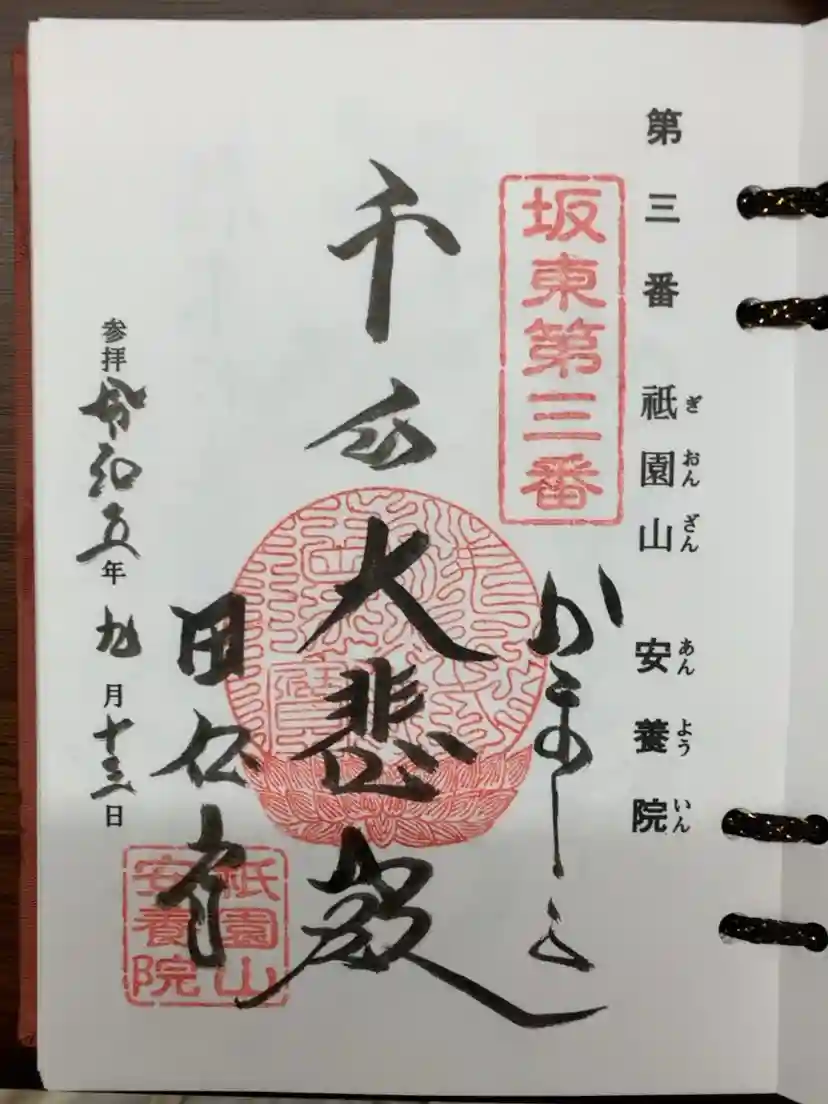 第三番 祇園山 安養院
ぎおんざん あんよういん
坂東第三番
千手大悲殿
田代
参拝 令和五年九月十三日
祇園山
安養院